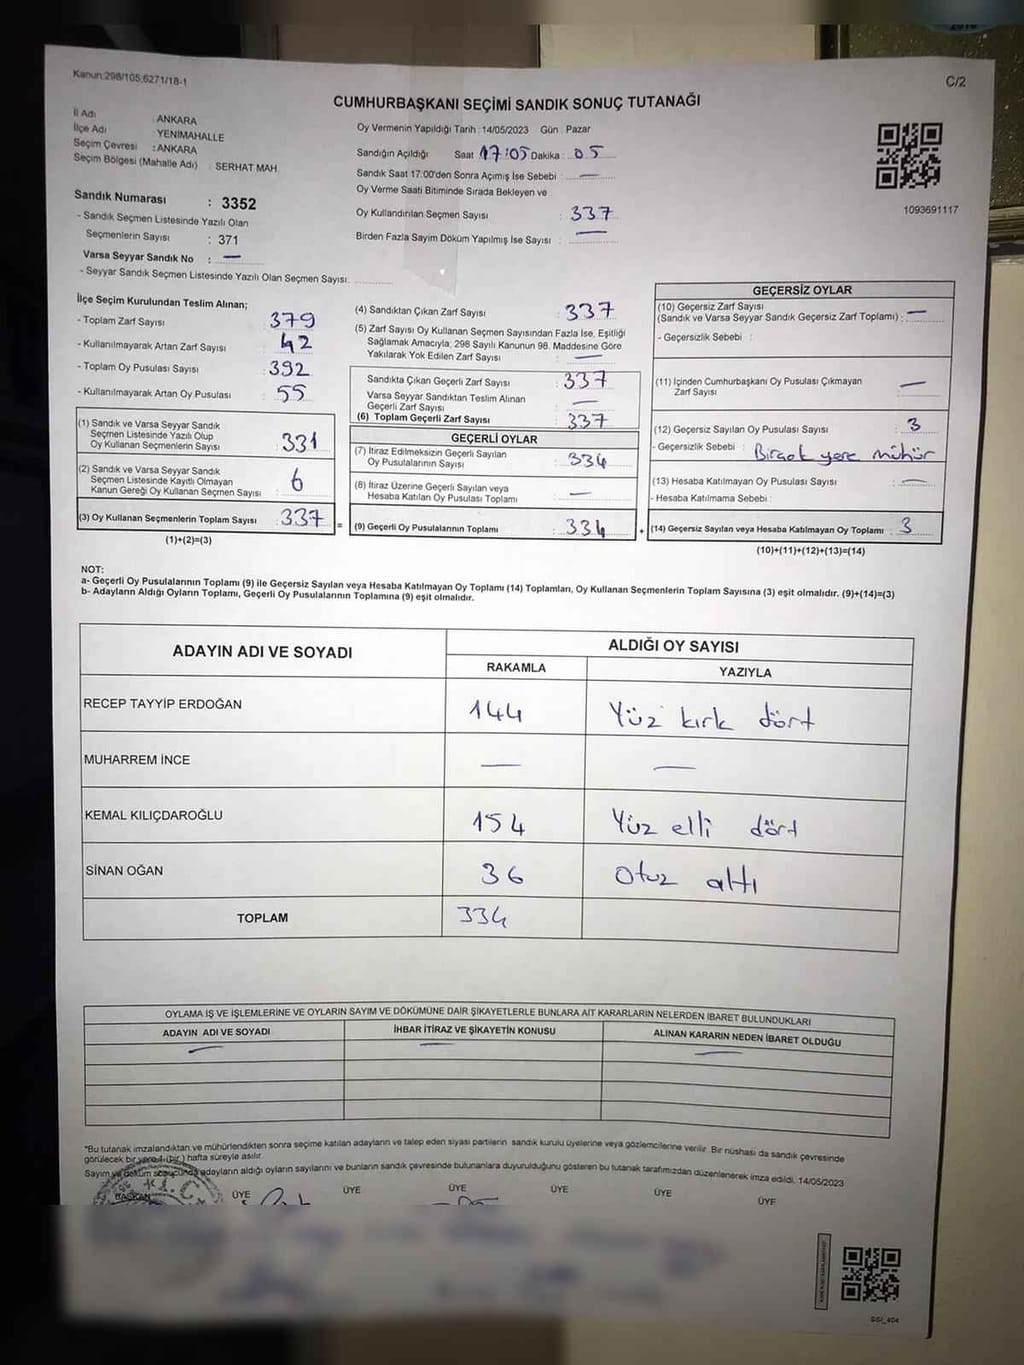 Kanun:298/105;6271/18-1
C/2
CUMHURBAŞKANI SEÇİMİ SANDIK SONUÇ TUTANAĞI
İl Adı : ANKARA
İlçe Adı : YENİMAHALLE
Seçim Çevresi : ANKARA
Seçim Bölgesi (Mahalle Adı) : SERHAT MAH.
Sandık Numarası : 3352
- Sandık Seçmen Listesinde Yazılı Olan
Seçmenlerin Sayısı : 371
Varsa Seyyar Sandık No : —
- Seyyar Sandık Seçmen Listesinde Yazılı Olan Seçmen Sayısı:
Oy Vermenin Yapıldığı Tarih :14/05/2023 Gün : Pazar
Sandığın Açıldığı Saat 17:05 Dakika : 05
Sandık Saat 17:00'den Sonra Açımış İse Sebebi : —
Oy Verme Saati Bitiminde Sırada Bekleyen ve
Oy Kullandırılan Seçmen Sayısı : 337
Birden Fazla Sayım Döküm Yapılmış İse Sayısı : —
1093691117
İlçe Seçim Kurulundan Teslim Alınan;
- Toplam Zarf Sayısı : 379
- Kullanılmayarak Artan Zarf Sayısı : 42
- Toplam Oy Pusulası Sayısı : 392
- Kullanılmayarak Artan Oy Pusulası : 55
(1) Sandık ve Varsa Seyyar Sandık
Seçmen Listesinde Yazılı Olup
Oy Kullanan Seçmenlerin Sayısı : 331
(2) Sandık ve Varsa Seyyar Sandık
Seçmen Listesinde Kayıtlı Olmayan
Kanun Gereği Oy Kullanan Seçmen Sayısı : 6
(3) Oy Kullanan Seçmenlerin Toplam Sayısı : 337
(1)+(2)=(3)
=
(4) Sandıktan Çıkan Zarf Sayısı : 337
(5) Zarf Sayısı Oy Kullanan Seçmen Sayısından Fazla İse, Eşitliği
Sağlamak Amacıyla; 298 Sayılı Kanunun 98. Maddesine Göre
Yakılarak Yok Edilen Zarf Sayısı : —
Sandıkta Çıkan Geçerli Zarf Sayısı : 337
Varsa Seyyar Sandıktan Teslim Alınan
Geçerli Zarf Sayısı : —
(6) Toplam Geçerli Zarf Sayısı : 337
GEÇERLİ OYLAR
(7) İtiraz Edilmeksizin Geçerli Sayılan
Oy Pusulalarının Sayısı : 334
(8) İtiraz Üzerine Geçerli Sayılan veya
Hesaba Katılan Oy Pusulası Toplamı : —
(9) Geçerli Oy Pusulalarının Toplamı : 334
+
GEÇERSİZ OYLAR
(10) Geçersiz Zarf Sayısı
(Sandık ve Varsa Seyyar Sandık Geçersiz Zarf Toplamı) : —
- Geçersizlik Sebebi :
(11) İçinden Cumhurbaşkanı Oy Pusulası Çıkmayan
Zarf Sayısı : —
(12) Geçersiz Sayılan Oy Pusulası Sayısı : 3
- Geçersizlik Sebebi : Birçok yere mühür
(13) Hesaba Katılmayan Oy Pusulası Sayısı : —
- Hesaba Katılmama Sebebi :
(14) Geçersiz Sayılan veya Hesaba Katılmayan Oy Toplamı : 3
(10)+(11)+(12)+(13)=(14)
NOT:
a- Geçerli Oy Pusulalarının Toplamı (9) ile Geçersiz Sayılan veya Hesaba Katılmayan Oy Toplamı (14) Toplamları, Oy Kullanan Seçmenlerin Toplam Sayısına (3) eşit olmalıdır. (9)+(14)=(3)
b- Adayların Aldığı Oyların Toplamı, Geçerli Oy Pusulalarının Toplamına (9) eşit olmalıdır.
ADAYIN ADI VE SOYADI
ALDIĞI OY SAYISI
RAKAMLA YAZIYLA
RECEP TAYYİP ERDOĞAN 144 Yüz kırk dört
MUHARREM İNCE — —
KEMAL KILIÇDAROĞLU 154 Yüz elli dört
SİNAN OĞAN 36 Otuz altı
TOPLAM 334
OYLAMA İŞ VE İŞLEMLERİNE VE OYLARIN SAYIM VE DÖKÜMÜNE DAİR ŞİKAYETLERLE BUNLARA AİT KARARLARIN NELERDEN İBARET BULUNDUKLARI
ADAYIN ADI VE SOYADI İHBAR İTİRAZ VE ŞİKAYETİN KONUSU ALINAN KARARIN NEDEN İBARET OLDUĞU
— — —
"Bu tutanak imzalandıktan ve mühürlendikten sonra seçime katılan adayların ve talep eden siyasi partilerin sandık kurulu üyelerine veya gözlemcilerine verilir. Bir nüshası da sandık çevresinde
görülecek bir yere 1 (bir) hafta süreyle asılır.
Sayım ve döküm sonucunda adayların aldığı oyların sayılarını ve bunların sandık çevresinde bulunanlara duyurulduğunu gösteren bu tutanak tarafımızdan düzenlenerek imza edildi. 14/05/2023
BAŞKAN ÜYE ÜYE ÜYE ÜYE ÜYE ÜYE